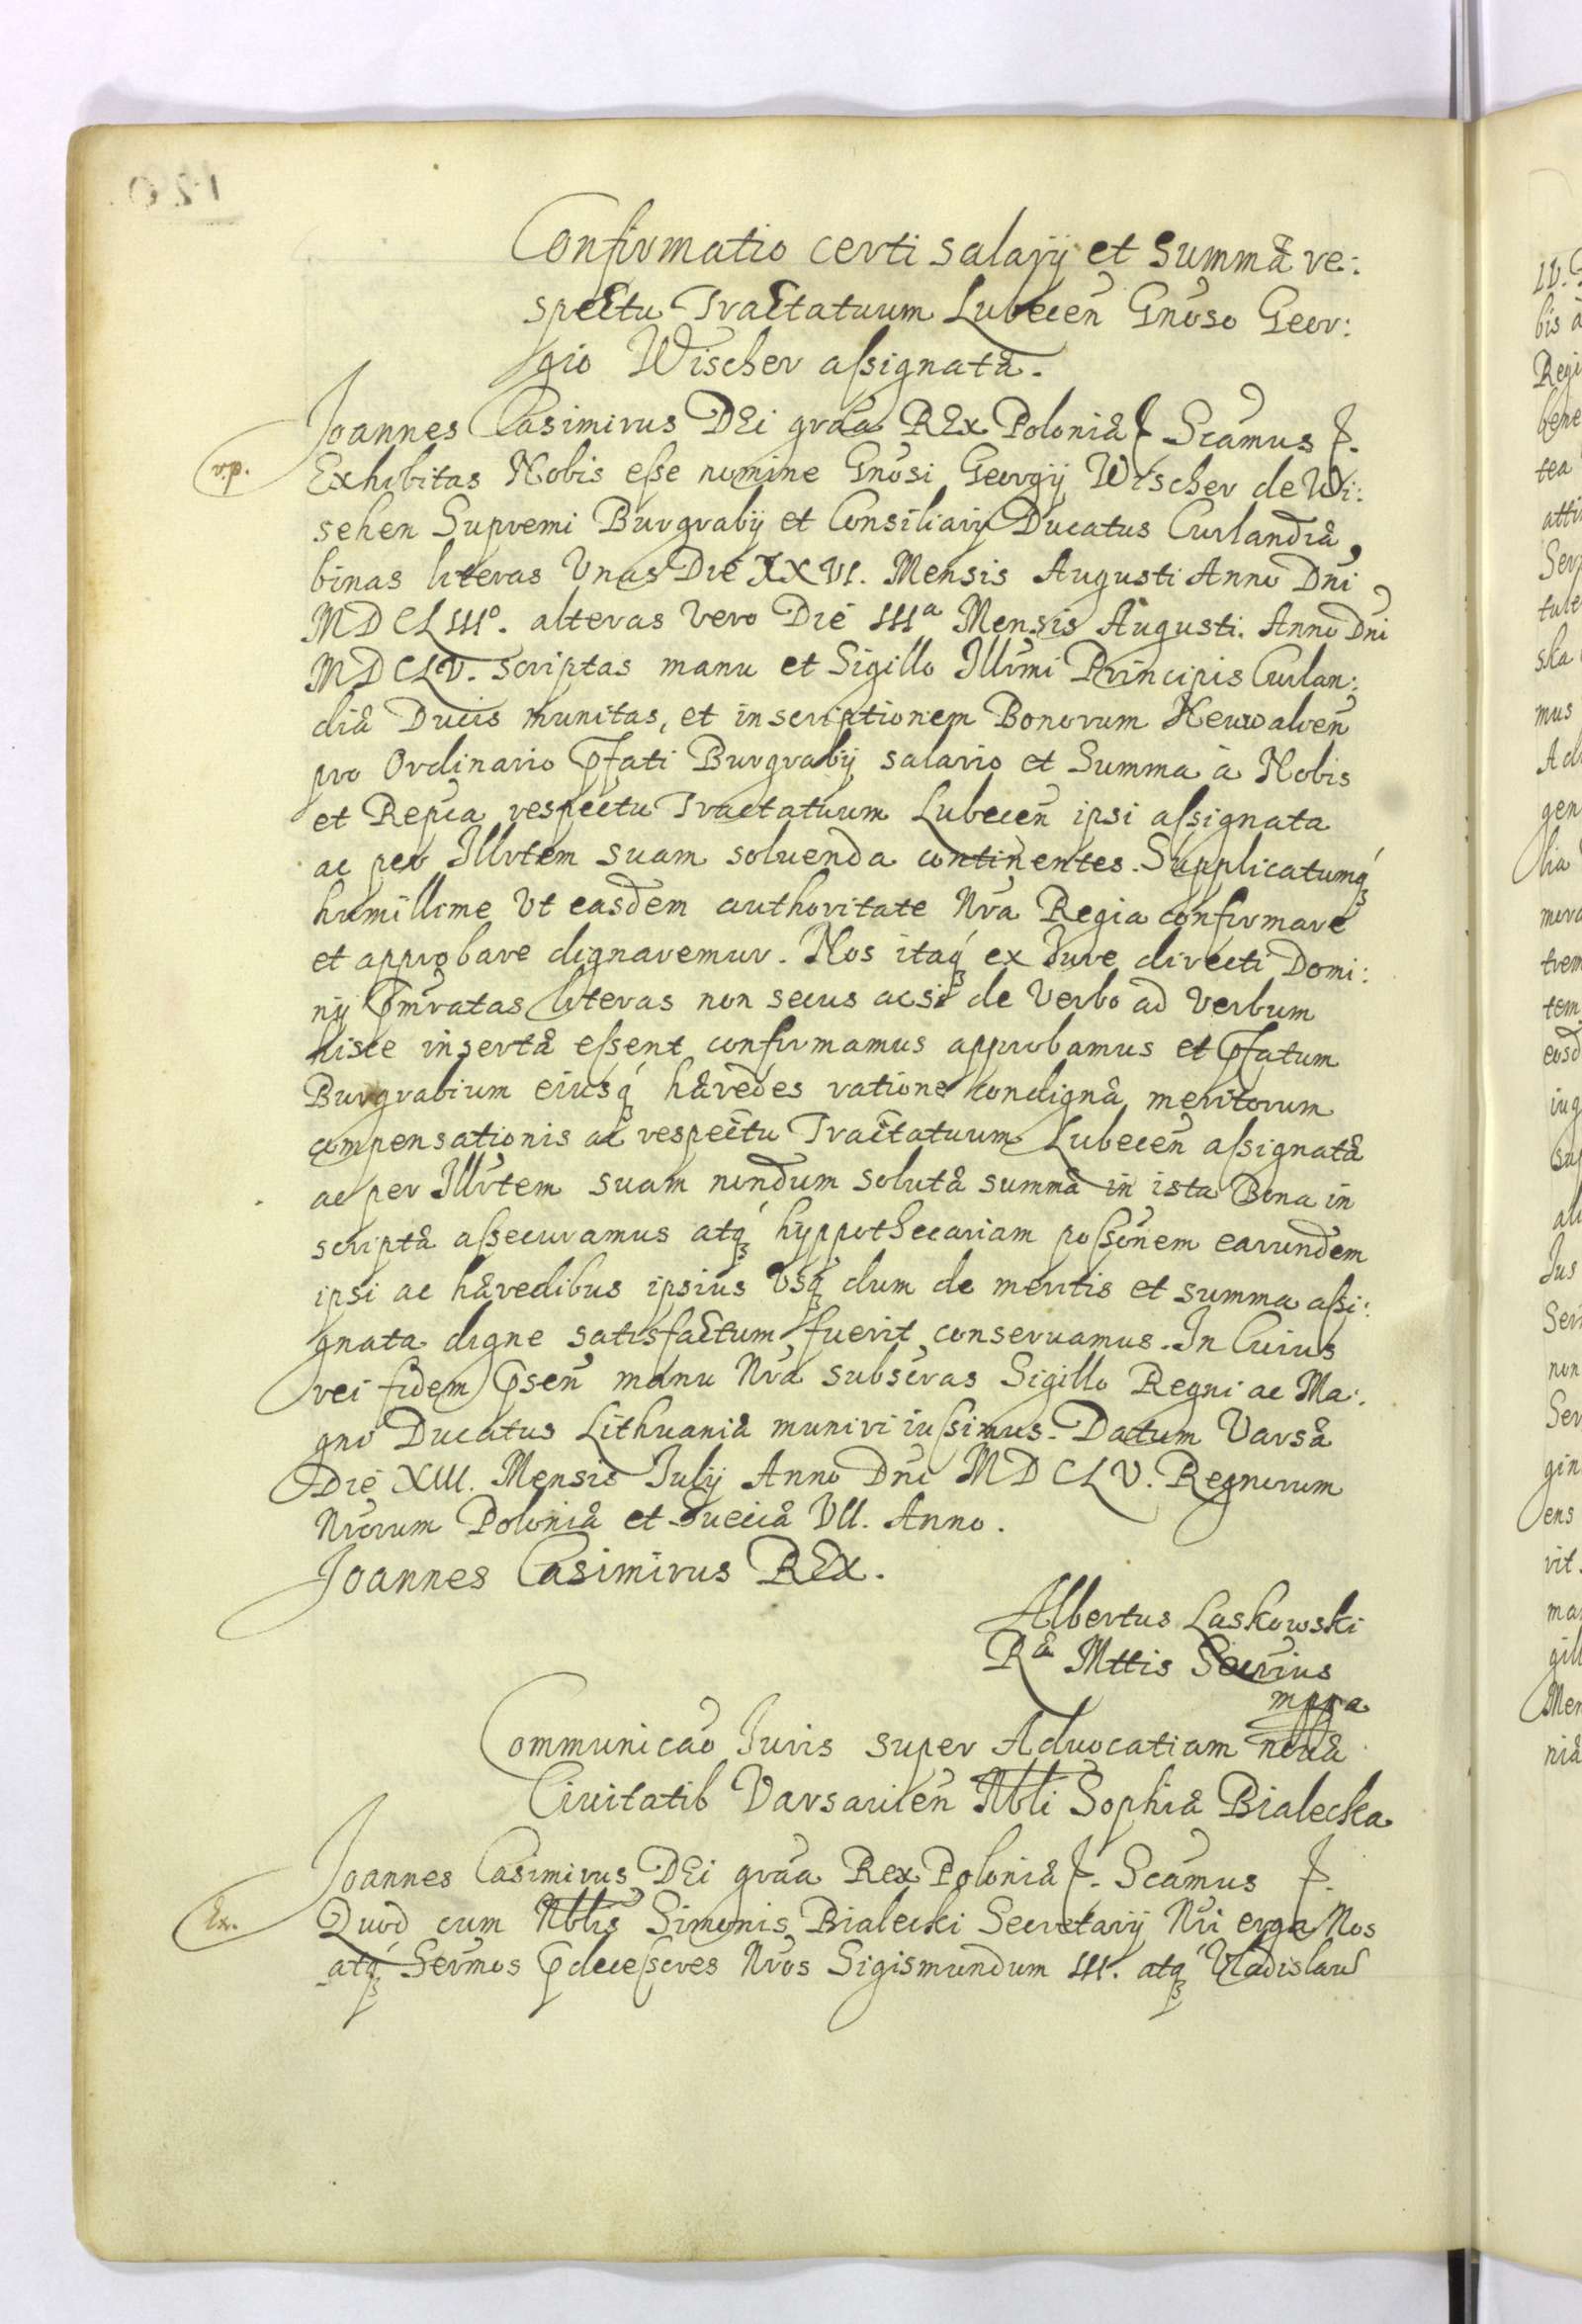 Confirmatio certi salarij et summæ re:
spectu Tractatuum Lubecen Gnoso Geor:
gio Wischer assignatæ.
Joannes Casimirus DEi graa REx Poloniæ &. Scamus &.
v.p.
Exhibitas Nobis esse nomine Gnosi Georgij Wischer de Wi:
schen Supremi Burgrabij et Consiliarij Ducatus Curlandiæ,
binas literas Unas Die XXVI. Mensis Augusti Anno Dni
MDCLIIIº. alteras vero Die IIIª Mensis Augusti. Anno Dni
MDCLV. scriptas manu et Sigillo Illrmi Principis Curlan:
diæ Ducis munitas, et inscriptionem Bonorum Neuwalven
pro Ordinario pfati Burgrabij salario et Summa à Nobis
et Repca respectu Tractatuum Lubecen ipsi assignata
ac per Illrtem suam soluenda continentes. Supplicatumq́
humillime Vt easdem authoritate Nra Regia confirmare
et approbare dignaremur. Nos itaq́ ex Jure directi Domi:
nij pmratas literas non secus acsi de Verbo ad Verbum
hisce insertæ essent confirmamus approbamus et pfatum
Burgrabium eiusq́ hæredes ratione condignæ meritorum
compensationis ac respectu Tractatuum Lubecen assignatæ
ac per Illrtem suam nondum solutæ summæ in ista Bona in
scriptæ assecuramus atq́ hyppothecariam possonem earundem
ipsi ac hæredibus ipsius Vsq́ dum de meritis et summa assi:
gnata digne satisfactum fuerit conseruamus. In Cuius
rei fidem psen manu Nra subscras Sigillo Regni ac Ma:
gni Ducatus Lithuaniæ muniri iussimus. Datum Varsæ
Die XIII. Mensis Julij Anno Dni MDCLV. Regnorum
Nrorum Poloniæ et Sueciæ VII. Anno.
Joannes Casimirus REx.
Albertus Laskowski
Ræ Mttis Secrius
mppa
Communicao Juris super Aduocatiam nouæ
Ciuitatis Varsauien Nbli Sophiæ Bialecka
Joannes Casimirus DEi graa Rex Poloniæ &. Scamus &.
Ex.
Quod cum Nblis Simonis Bialecki Secretarij Nri erga Nos
atq́ Sermos pdecessores Nros Sigismundum III. atq́ Vladislaus